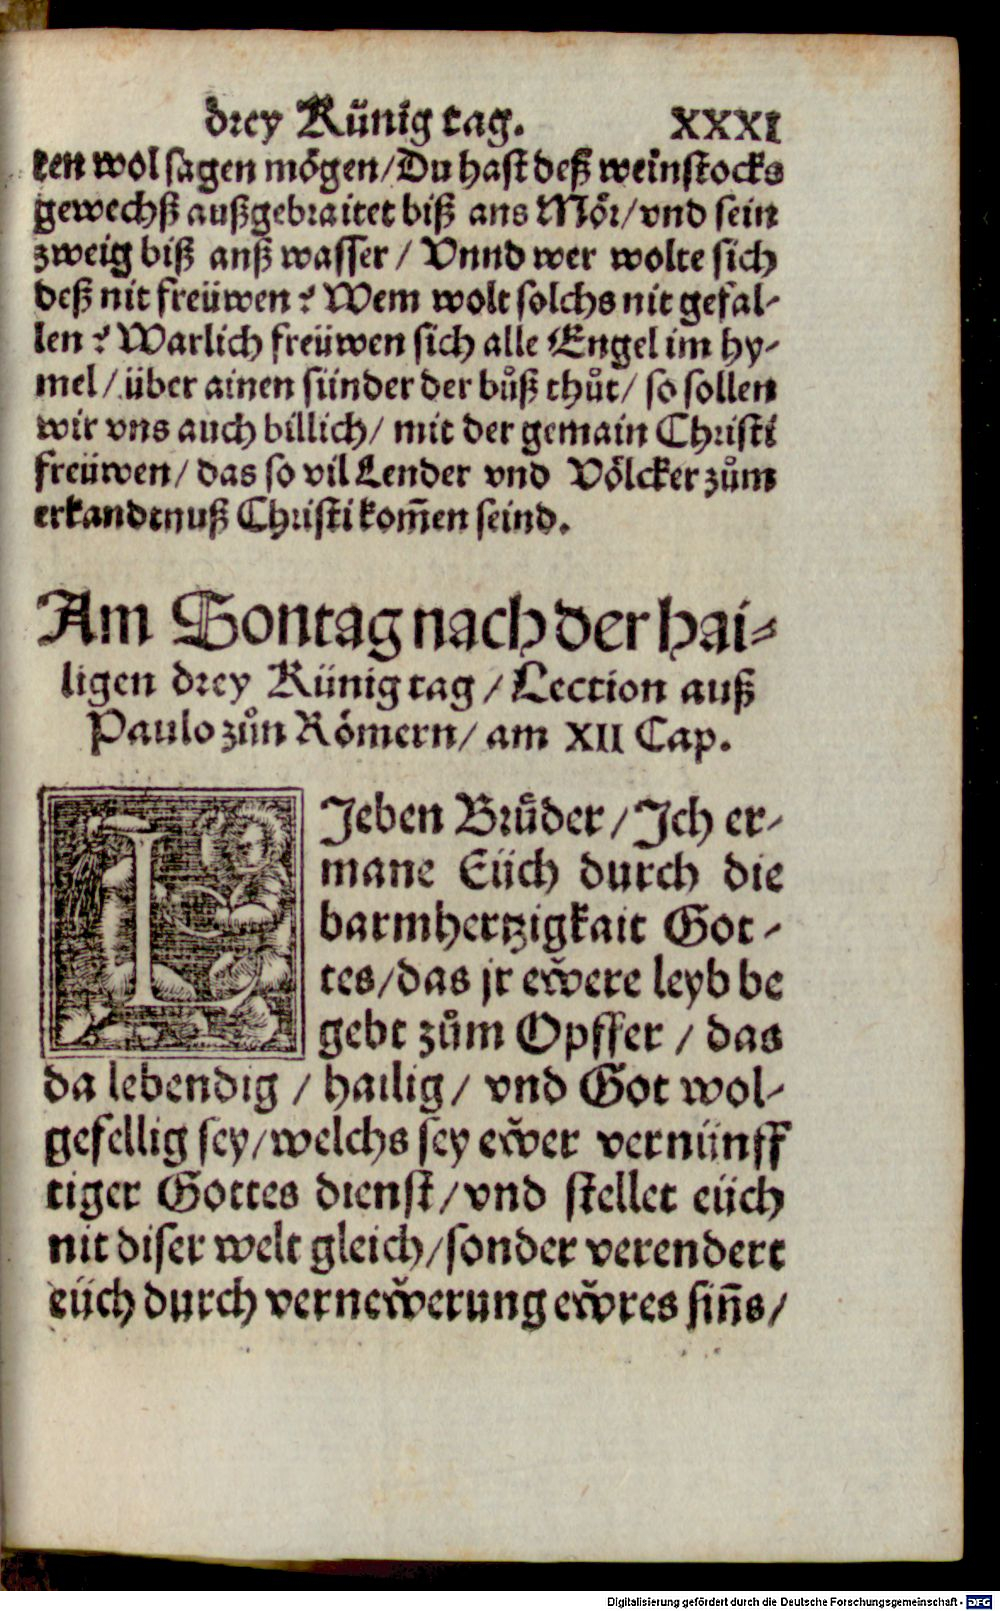 drey Künig tag. XXXI
ten wol sagen mögen/Du hast deß weinstocks
gewechß außgebraitet biß ans Mör/vnd sein
zweig biß anß wasser / Vnnd wer wolte sich
deß nit freüwen? Wem wolt solchs nit gefal-
len? Warlich freüwen sich alle Engel im hy-
mel/ über ainen sünder der bůß thůt/ so sollen
wir vns auch billich/ mit der gemain Christi
freüwen/ das so vil Lender vnd Völcker zům
erkandtnuß Christi kom̄en seind.
Am Sontag nach der hai-
ligen drey Künig tag / Lection auß
Paulo zůn Römern/ am XII Cap.
LJeben Brůder / Jch er-
mane Eüch durch die
barmhertzigkait Got-
tes/das jr ewͤere leyb be
gebt zům Opffer / das
da lebendig / hailig/ vnd Got wol-
gefellig sey/welchs sey ewͤer vernünff
tiger Gottes dienst/vnd stellet eüch
nit diser welt gleich/sonder verendert
eüch durch vernewͤerung ewͤres sin̄s/
Digitalisierung gefördert durch die Deutsche Forschungsgemeinschaft - DFG